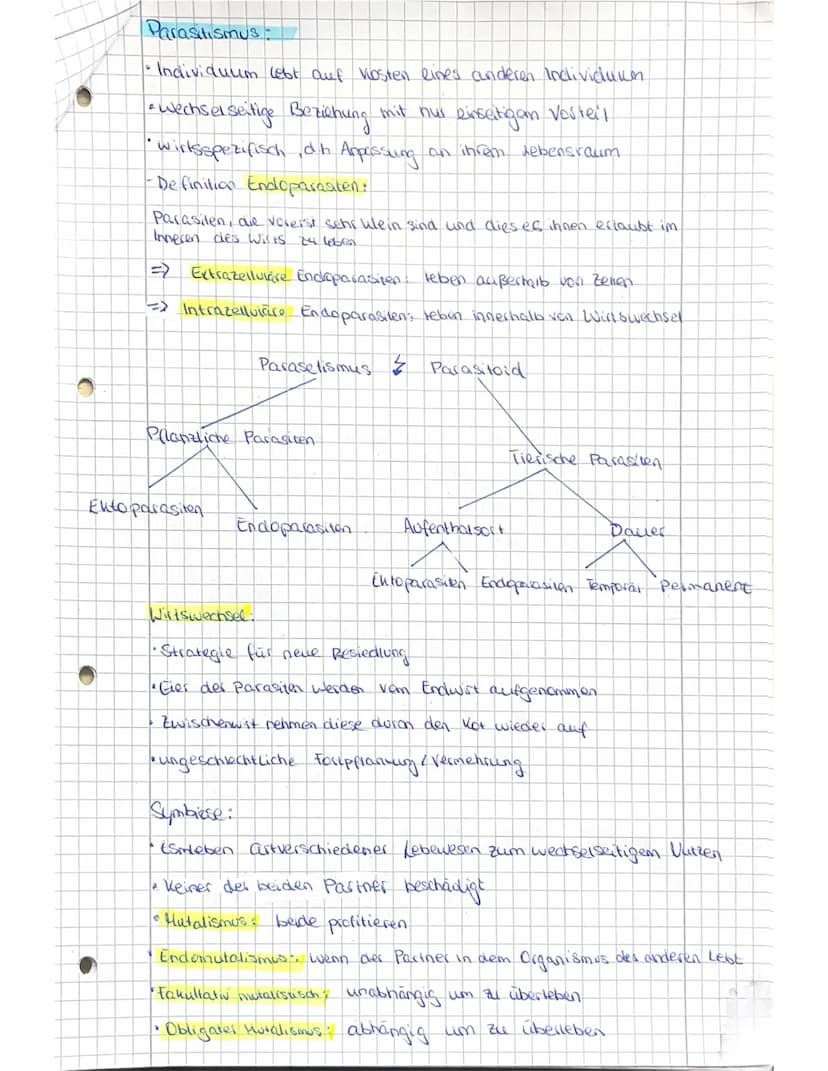 Parasitismus:
• Individuum lebt auf Kosten eines anderen Individuum
• Wechselseitige Beziehung mit nur einseitigem Vorteil
• wirtsspezifisch, dh Anpassung an ihrem Lebensraum
- Definition Endoparasiten:
Parasiten, die vorerst sehr klein sind und dieses ihnen erlaubt im
Inneren des Wirts zu leben
=> Extrazelluläre Endoparasiten: leben außerhalb von Zellen
=> Intrazelluläre Endoparasiten: leben innerhalb von Wirtswechsel
Paraselismus ↯ Parasitoid
Pflanzliche Parasiten
Tierische Parasiten
Ektoparasiten
Endoparasiten
Aufenthalsort
Dauer
Ektoparasiten Endoparasiten Temporär Permanent
Wirtswechsel:
• Strategie für neue Besiedlung
• Eier des Parasiten werden vom Endwirt aufgenommen
• Zwischenwirt nehmen diese durch den Kot wieder auf
• ungeschlechtliche Fortpflanzung / Vermehrung
Symbiose:
• leben artverschiedener Lebewesen zum wechselseitigem Nutzen
• Keiner der beiden Partner beschädigt
• Mutalismus: beide profitieren
• Endomutalismus: wenn der Partner in dem Organismus des anderen lebt
• Fakultativ mutalistisch: unabhängig um zu überleben
• Obligater Mutalismus: abhängig um zu überleben